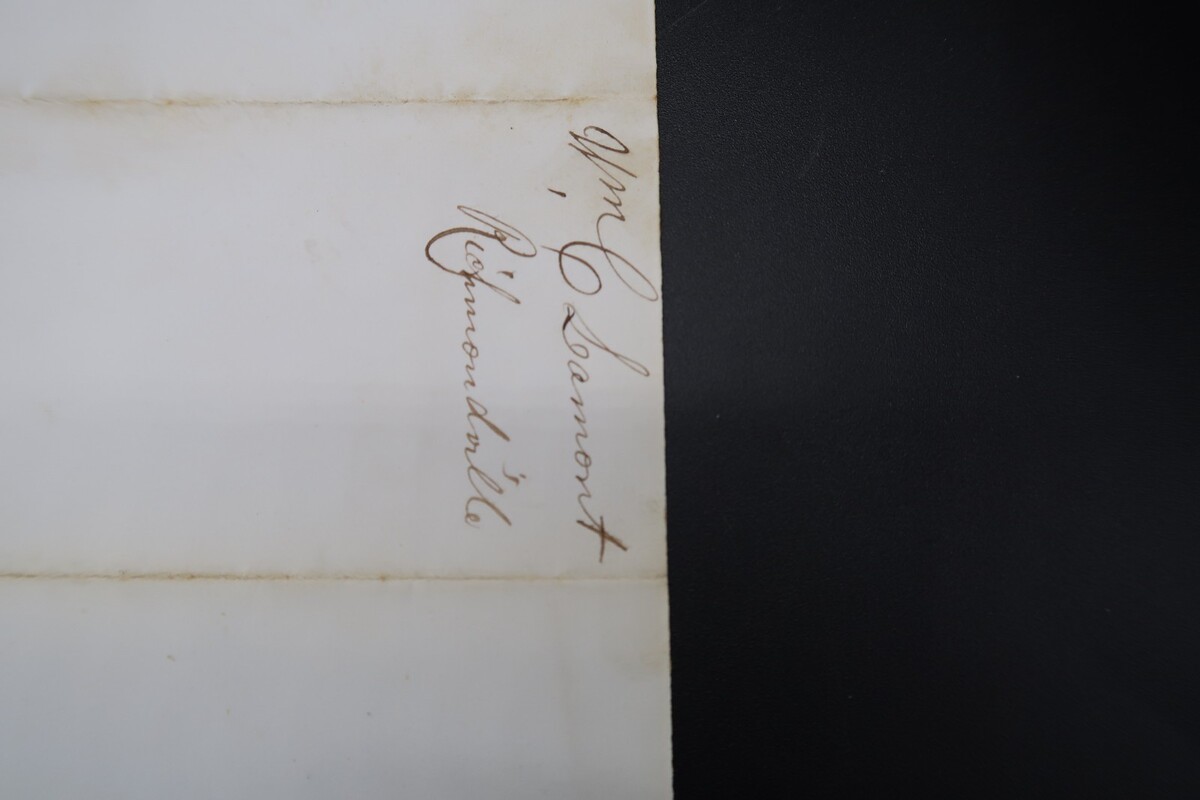 Wm C Lamont
Richmondville